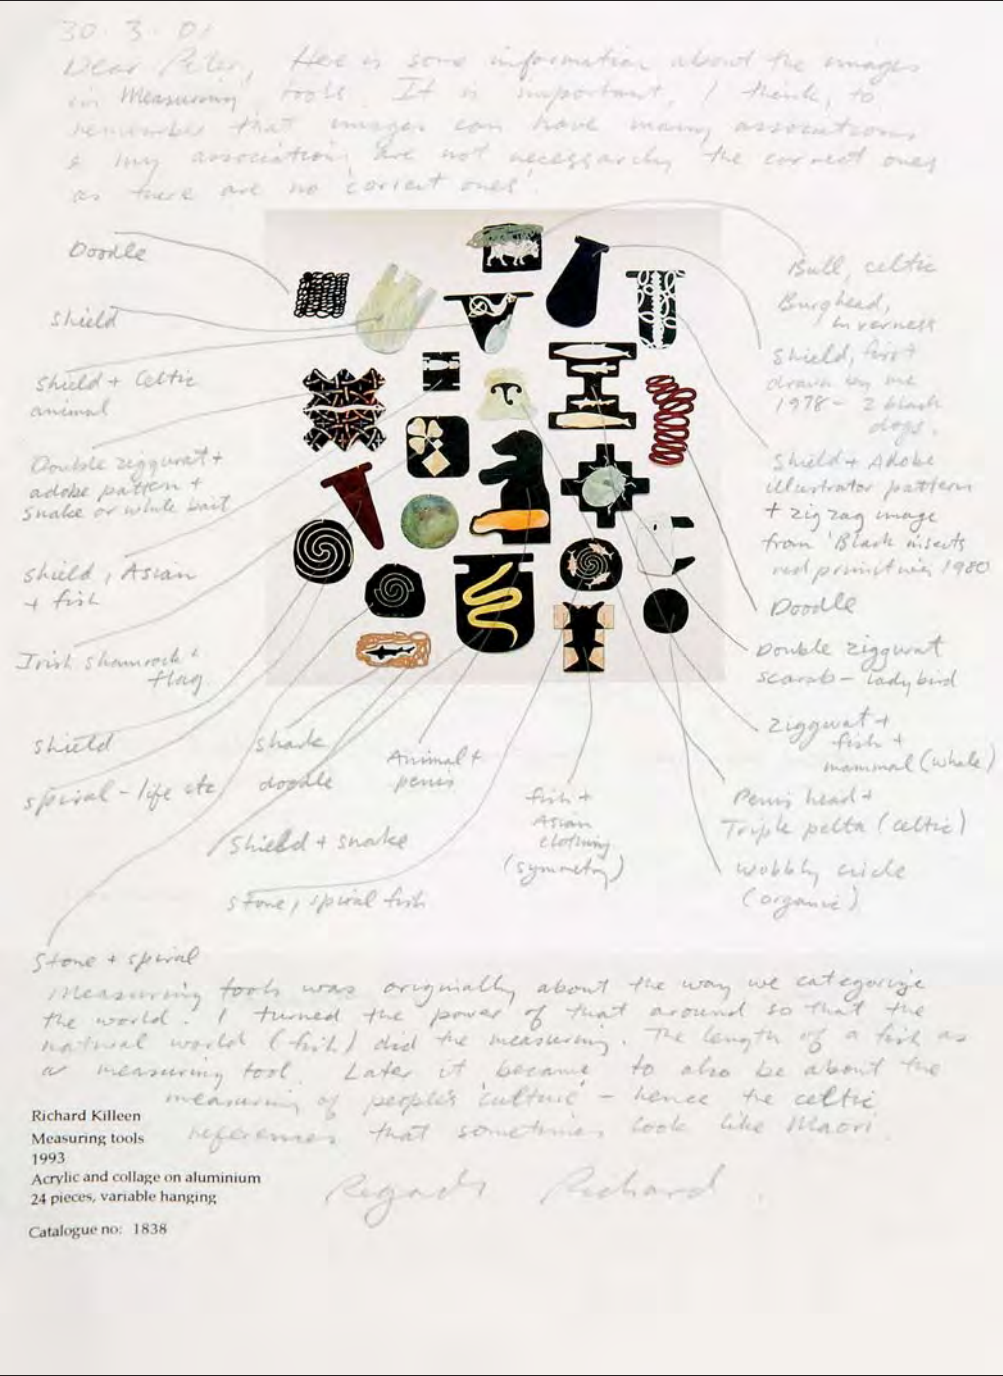 30.3.01
Dear Peter, Here is some information about the images
in 'Measuring tools'. It is important, I think, to
remember that images can have many associations
& my associations are not necessarily the correct ones
as there are no 'correct ones'.
Doodle
Shield
Shield + Celtic
animal
Double ziggurat +
adobe pattern +
snake or white bait
Shield, Asian
+ fish
Irish shamrock +
flag
Shield
spiral - life etc
Stone + spiral
Shark
doodle
Shield + snake
Stone, spiral fish
Animal +
penis
fish +
Asian
clothing
(symmetry)
Bull, celtic
Burghead,
Inverness
Shield, first
drawn by me
1978 - 2 black
dogs.
Shield + Adobe
illustrator pattern
+ zig zag image
from 'Black insects
red primitives' 1980
Doodle
Double ziggurat
scarab - ladybird
Ziggurat +
fish +
mammal (whale)
Penis head +
Triple pelta (celtic)
wobbly circle
(organic)
Measuring tools was originally about the way we categorize
the world. I turned the power of that around so that the
natural world (fish) did the measuring. The length of a fish as
a measuring tool. Later it became to also be about the
measuring of people's 'culture' - hence the celtic
references that sometimes look like Maori.
Regards Richard.
Richard Killeen
Measuring tools
1993
Acrylic and collage on aluminium
24 pieces, variable hanging
Catalogue no: 1838